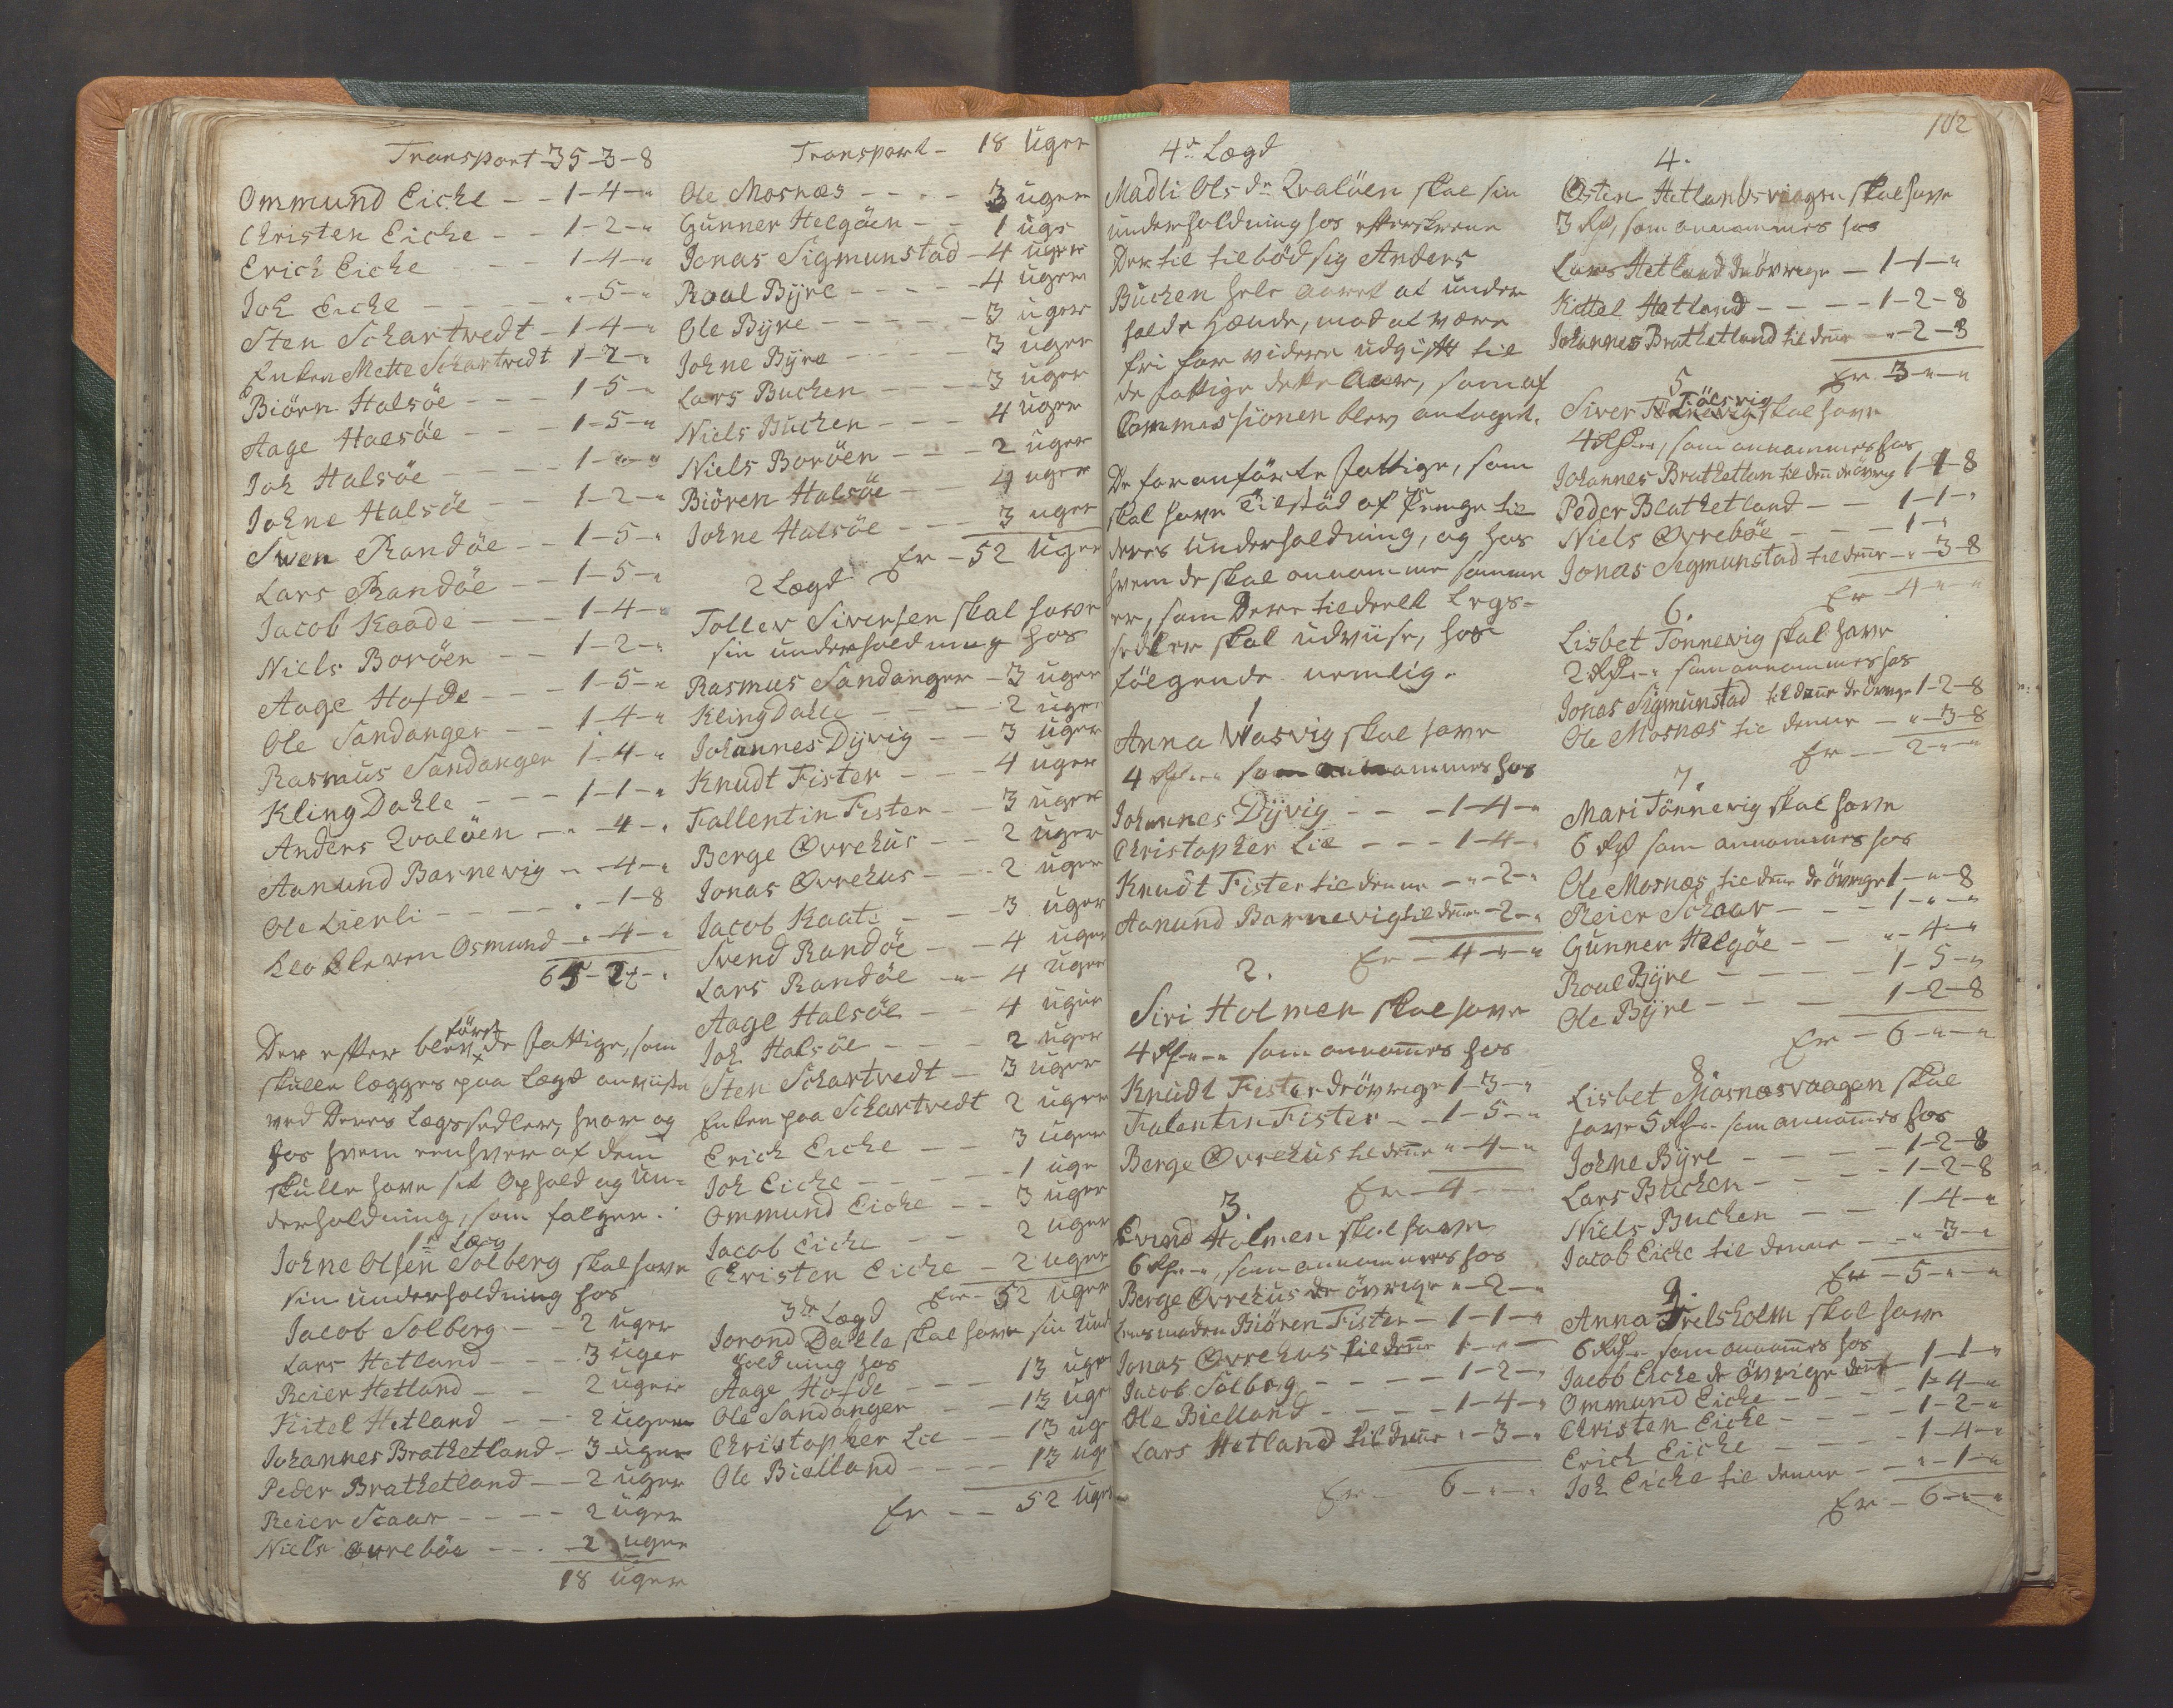 Transport 35-3-8
Ommund Eiche - - 1-4-"
Christen Eiche - - 1-2-"
Erich Eiche - - 1-4-"
Joh Eiche - - - "-5-"
Sten Schartvedt - 1-4-"
Enken Mette Schartvedt 1-2-"
Biörn Halsöe - - - 1-5-"
Aage Halsöe - - - 1-5-"
Joh Halsöe - - - 1-"-"
Johne Halsöe - - 1-2-"
Swen Randöe - - 1-5-"
Lars Randöe - - 1-5-"
Jacob Kaade - - - 1-4-"
Niels Boröen - - 1-2-"
Aage Hofde - - - 1-5-"
Ole Sandanger - - 1-4-"
Rasmus Sandanger 1-4-"
Kling Dahle - - - 1-1-"
Anders Qvalöen - "-4-"
Aanund Barnevig - "-4-"
Ole Lierli - - - - "-1-8
Osmund - "-4-"
Der efter blev först de fattige, som
skulle lægges paa Lægd anviiste
ved Deres Lægssedler, hvor og
hos hvem eenhver af dem
skulle have sit Ophold og Un=
derholdning, som følger:
1te Læg
Johne Olsen Solberg skal have
sin underholdning hos
Jacob Solberg - - 2 uger
Lars Hetland - - - 3 uger
Reier Hetland - - 2 uger
Kitel Hetland - - - 2 uger
Johannes Brathetland - 3 uger
Peder Brathetland - - 2 uger
Reier Scaar - - - - 2 uger
Niels Øvreböe - - - 2 uger
18 uger
Transport - 18 Uger
Ole Mosnæs - - - - 3 uger
Gunner Helgöen - - 1 uge
Jonas Sigmunstad - 4 uger
Roal Byre - - - - - 4 uger
Ole Byre - - - - - 3 uger
Johne Byre - - - - 3 uger
Lars Buchen - - - - 3 uger
Niels Buchen - - - 4 uger
Niels Boröen - - - 2 uger
Biören Halsöe - - 4 uger
Johne Halsöe - - - 3 uger
Er - 52 Uger
2 Lægd
Toller Siversen skal have
sin underholdning hos
Rasmus Sandanger - 3 uger
Kling Dalle - - - - 2 uger
Johannes Dyvig - - 3 uger
Knudt Fister - - - 4 uger
Fallentin Fister - - 3 uger
Berge Øvrehus - - 2 uger
Jonas Øvrehus - - 2 uger
Jacob Kaate - - - 3 uger
Svend Randöe - - 4 uger
Lars Randöe - - 4 uger
Aage Halsöe - - 4 uger
Joh. Halsöe - - - 2 uger
Sten Schartvedt - 3 uger
Enken paa Schartvedt 2 uger
Erich Eiche - - 3 uger
Joh Eiche - - - - 1 uge
Ommund Eiche - - 3 uger
Jacob Eiche - - 2 uger
Christen Eiche - 2 uger
Er - 52 uger
3die Lægd
Jorond Dalle skal have sin und
holdning hos
Aage Hofde - - - 13 uger
Ole Sandanger - - 13 uger
Christopher Lie - - 13 ug
Ole Bielland - - - 13 ug
Er - - 52 Uger
102
4de Lægd
Madli Olsdr Qvalöen skal sin
underholdning hos efterskrevne
Der til tilbød sig Anders
Buchen hele Aaret at under
holde Hænde, mod at være
fri for videre udgift til
de fattige dette Aar, som af
Commissionen blev antaget.
De foranførte fattige, som
skal have Tilskud af Penge til
deres Underholdning, og hos
hvem de skal annamme samme
er, som Dere tildeelt Legs-
sedler skal udviise, hos
følgende nemlig.
1
Anna Wasvig skal have
4 Rd "-" som annammes hos
Johannes Dyvig - - - 1-4-"
Christopher Lie - - - 1-4-"
Knudt Fister til denne - "-2-"
Aanund Barnevig til denne - 2-"
Er - 4-"-"
2.
Siri Holmen skal have
4 Rd "-" som annames hos
Knudt Fister de övrige 1-3-"
Falentin Fister - - 1-5-"
Berge Øvrehus til denne "-4-"
Er - 4
3.
Evind Holmen skal have
6 Rd "-", som annammes hos
Berge Øvrehus de övrige "-2-"
Biören Fister - 1-1-"
Jonas Øvrehus til denne 1-"-
Jacob Solberg - - - - 1-2-"
Ole Bielland - - - - 1-4-"
Lars Hetland til denne "-3-"
Er - 6-"-"
4.
Østen Hetlandsvaagen skal have
3 Rd, som annammes hos
Lars Hetland de övrige - 1-1-"
Kittel Hetland - - - - 1-2-8
Johannes Brathetland til denne - "-2-8
Er 3-"-"
5
Siver Tölsvig skal have
4 Rd "-", som annammes hos
Johannes Brathetlan til den de övrig 1-1-8
Peder Brathetland - - 1-1-"
Niels Øvreböe - - - 1-"
Jonas Sigmunstad til denne - "-3-8
Er 4-"-"
6.
Lisbet Tönnevig skal have
2 Rd "-" som annammes hos
Jonas Sigmunstad til denne de övrige 1-2-8
Ole Mosnæs til denne - "-3-8
Er - - 2-"-"
7.
Mari Tönnevig skal have
6 Rd som annammes hos
Ole Mosnæs til denne de övrige 1-"-8
Reier Schaar - - - 1-"-"
Gunner Helgöe - - "-4-"
Roal Byre - - - - 1-5-"
Ole Byre - - - 1-2-8
Er - 6-"-"
8.
Lisbet Mosnæsvaagen skal
have 5 Rd "-" som annames hos
Johne Byre - - - - 1-2-8
Lars Buchen - - - - 1-2-8
Niels Buchen - - 1-4-"
Jacob Eiche til denne - - "-3-"
Er - 5-"-"
9.
Anna Trelsholm skal have
6 Rd "-" som annames hos
Jacob Eiche de övrige denne - 1-1-"
Ommund Eiche - - - - 1-4-"
Christen Eiche - - - - 1-2-"
Erich Eiche - - - - 1-4-"
Joh Eiche til denne - - "-1-"
Er - 6-"-"